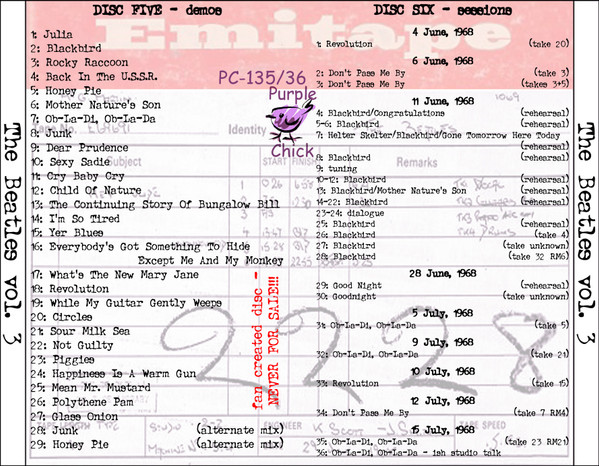 DISC FIVE - demos
1: Julia
2: Blackbird
3: Rocky Raccoon
4: Back In The U.S.S.R.
5: Honey Pie
6: Mother Nature's Son
7: Ob-La-Di, Ob-La-Da
8: Junk
9: Dear Prudence
10: Sexy Sadie
11: Cry Baby Cry
12: Child Of Nature
13: The Continuing Story Of Bungalow Bill
14: I'm So Tired
15: Yer Blues
16: Everybody's Got Something To Hide
Except Me And My Monkey
17: What's The New Mary Jane
18: Revolution
19: While My Guitar Gently Weeps
20: Circles
21: Sour Milk Sea
22: Not Guilty
23: Piggies
24: Happiness Is A Warm Gun
25: Mean Mr. Mustard
26: Polythene Pam
27: Glass Onion
28: Junk (alternate mix)
29: Honey Pie (alternate mix)
DISC SIX - sessions
4 June, 1968
1: Revolution (take 20)
6 June, 1968
2: Don't Pass Me By (take 3)
3: Don't Pass Me By (takes 3+5)
11 June, 1968
4: Blackbird/Congratulations (rehearsal)
5-6: Blackbird (rehearsal)
7: Helter Skelter/Blackbird/Gone Tomorrow Here Today
(rehearsal)
8: Blackbird (rehearsal)
9: tuning
10-12: Blackbird (rehearsal)
13: Blackbird/Mother Nature's Son (rehearsal)
14-22: Blackbird (rehearsal)
23-24: dialogue
25: Blackbird (rehearsal)
26: Blackbird (take 4)
27: Blackbird (take unknown)
28: Blackbird (take 32 RM6)
28 June, 1968
29: Good Night (rehearsal)
30: Goodnight (take unknown)
5 July, 1968
31: Ob-La-Di, Ob-La-Da (take 5)
9 July, 1968
32: Ob-La-Di, Ob-La-Da (take 21)
10 July, 1968
33: Revolution (take 15)
12 July, 1968
34: Don't Pass Me By (take 7 RM4)
15 July, 1968
35: Ob-La-Di, Ob-La-Da (take 23 RM21)
36: Ob-La-Di, Ob-La-Da - ish studio talk
Emitape
PC-135/36
Purple
Chick
fan created disc -
NEVER FOR SALE!!!
The Beatles vol. 3
The Beatles vol. 3
Identity
Subject
START
FINISH
Remarks
ENGINEER
2228